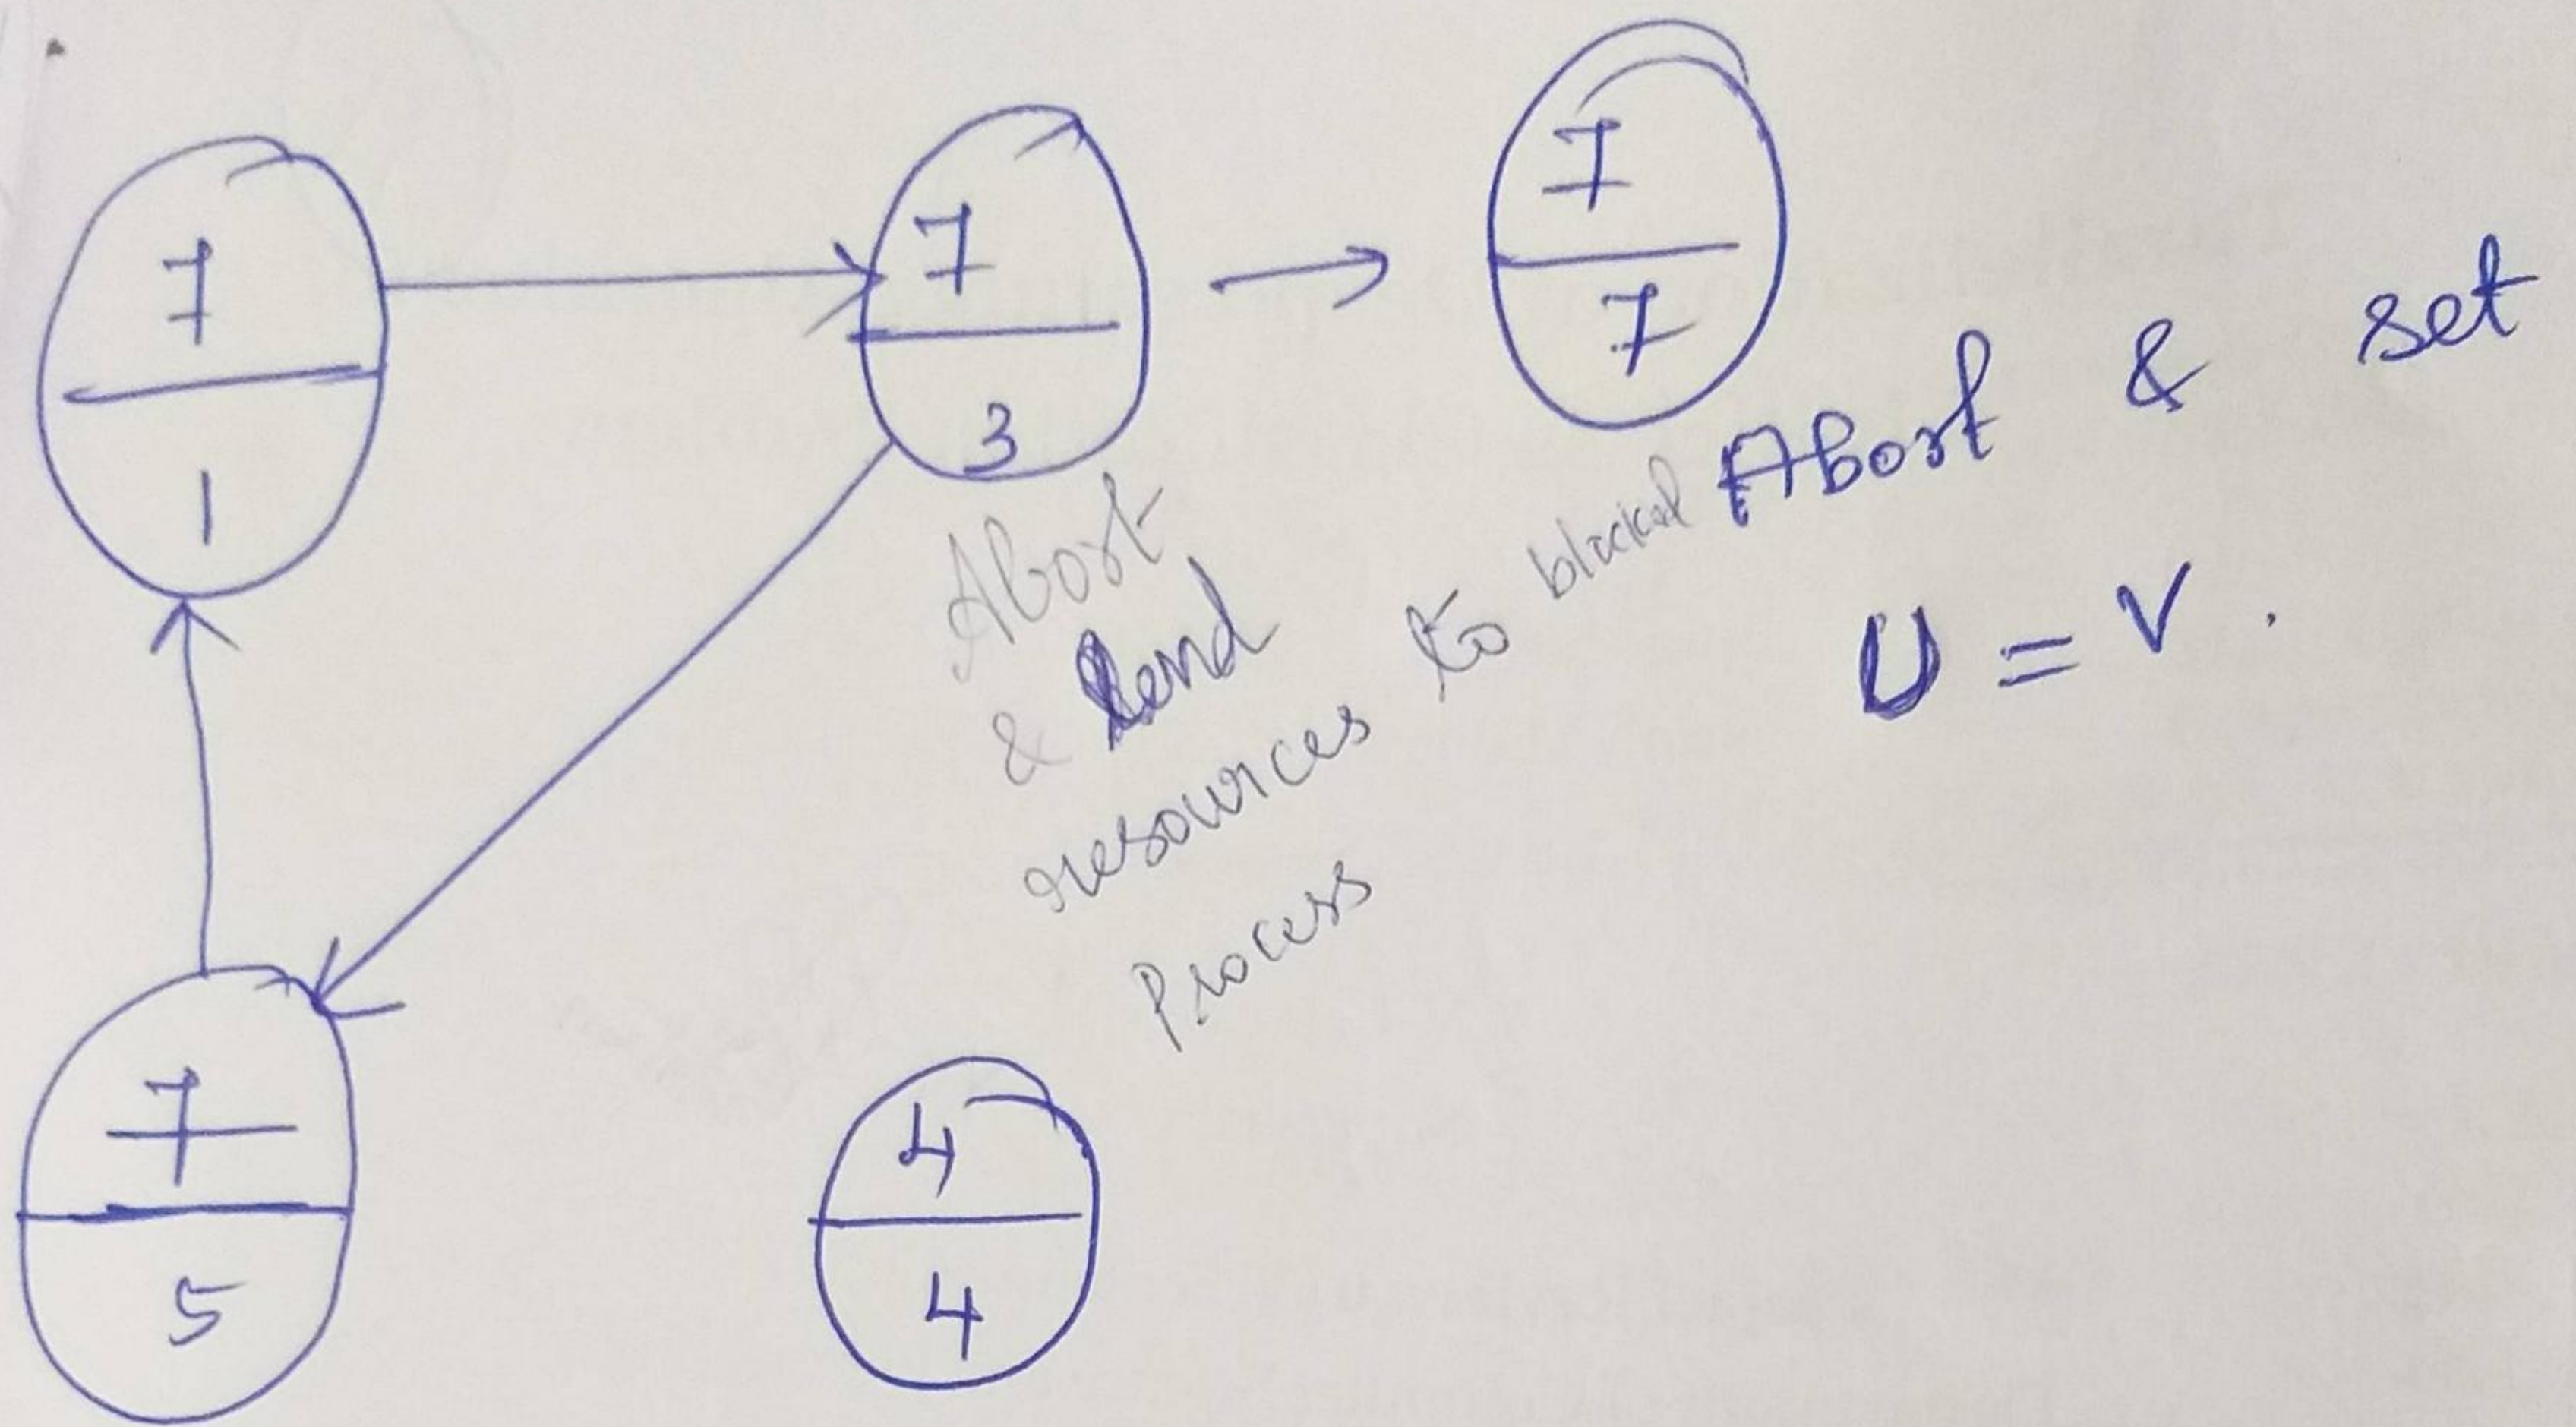 7
1
7
3
7
7
Abort & set
U = V .
Abort
& Send
resources to blocked
Process
7
5
4
4